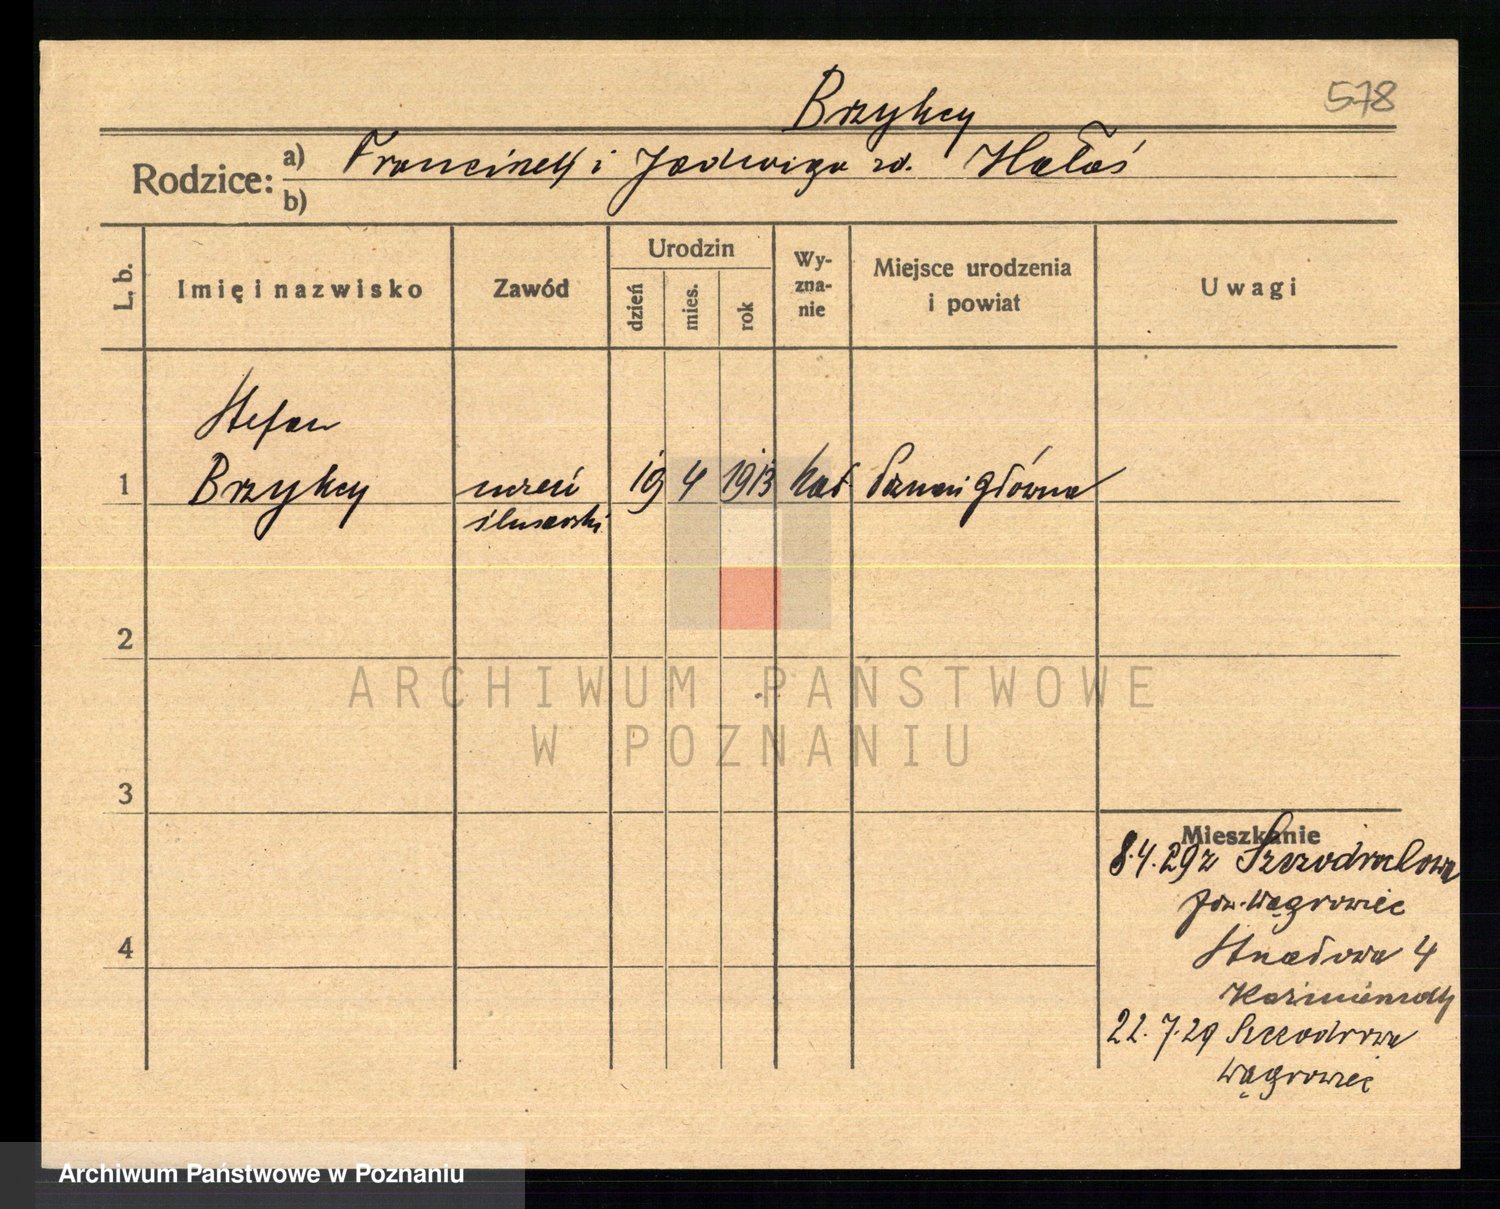 578
Brzykcy
Rodzice: a) Franciszek i Jadwiga rd. Hałas
b)
L. b. Imię i nazwisko Zawód Urodzin dzień mies. rok Wyznanie Miejsce urodzenia i powiat Uwagi
Stefan
1 Brzykcy uczeń 19 4 1913 kat Poznań Główna
ślusarski
2
ARCHIWUM PAŃSTWOWE
W POZNANIU
3
Mieszkanie
8.4.29 z
pow. Wągrowiec
4
22.7.29
Wągrowiec
Archiwum Państwowe w Poznaniu